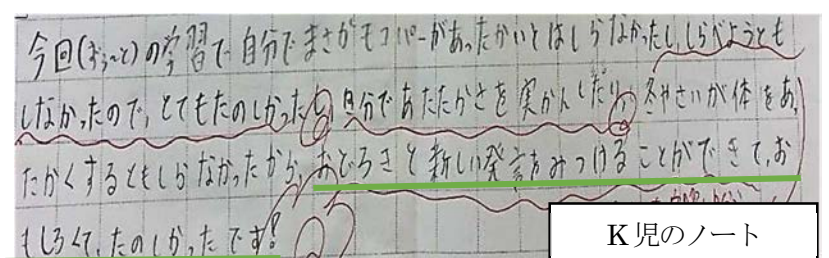 今回(ずぅ~と)の学習で自分でまさかモコパーがあったかいとはしらなかったし、しらべようとも
しなかったので、とてもたのしかったし、自分であたたかさを実かんしたり、冬やさいが体をあ
たかくするともしらなかったから、おどろきと新しい発言をみつけることができて、お
もしろくて、たのしかったです!
K児のノート